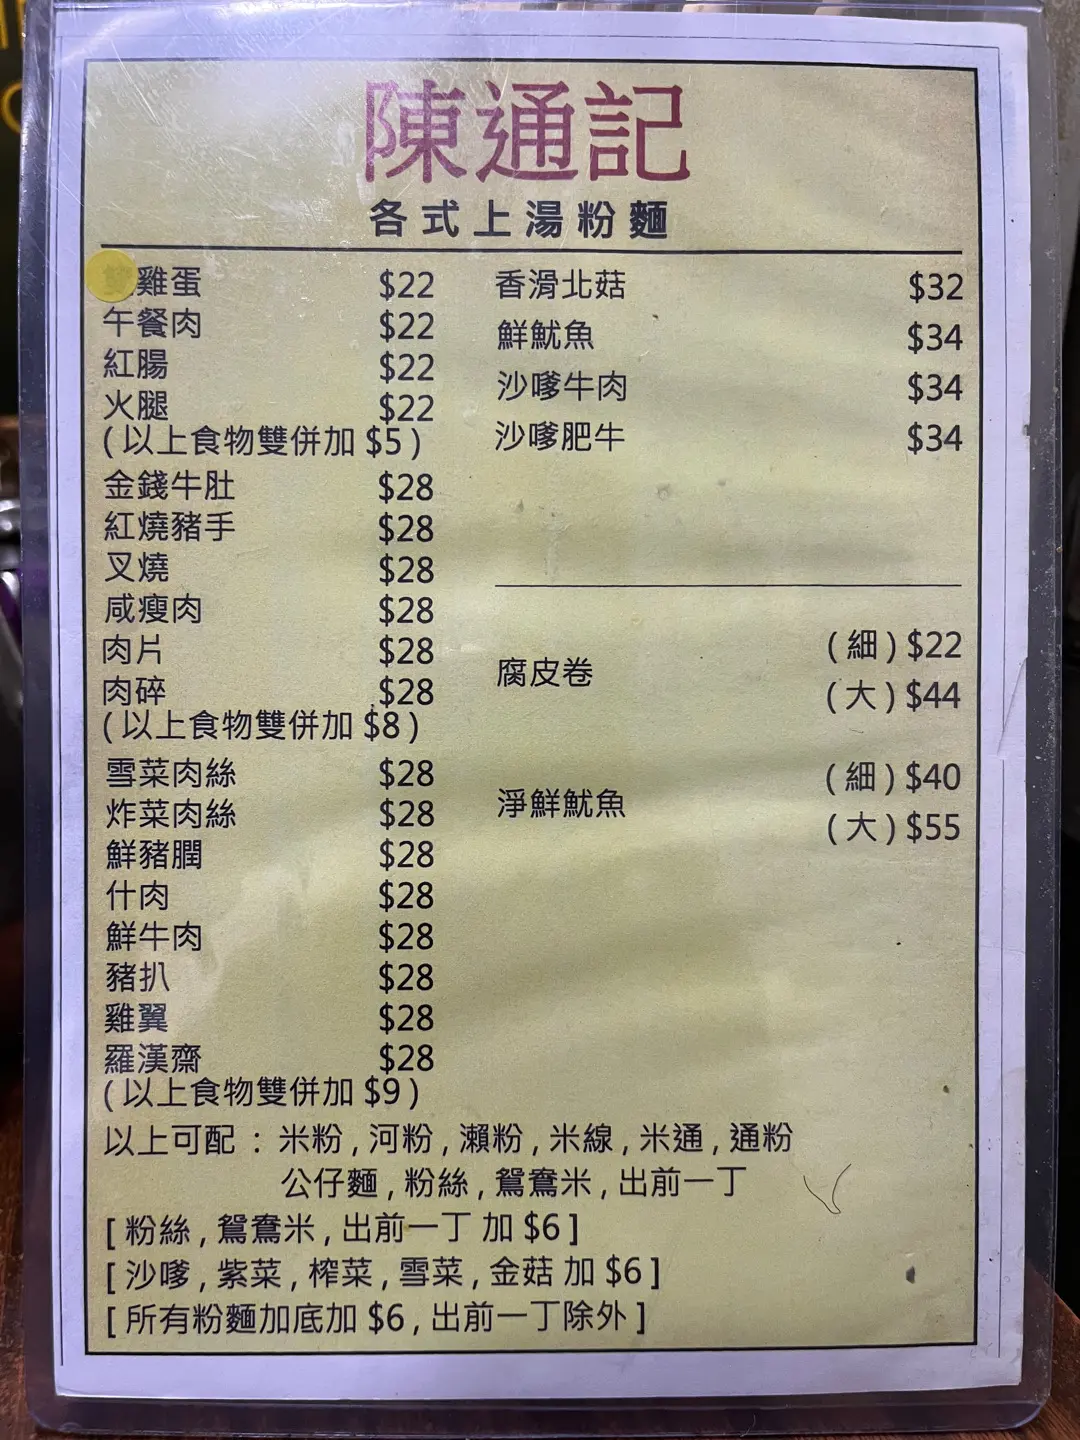 陳通記
各式上湯粉麵
雞蛋 $22
午餐肉 $22
紅腸 $22
火腿 $22
(以上食物雙併加 $5)
金錢牛肚 $28
紅燒豬手 $28
叉燒 $28
咸瘦肉 $28
肉片 $28
肉碎 $28
(以上食物雙併加 $8)
雪菜肉絲 $28
炸菜肉絲 $28
鮮豬膶 $28
什肉 $28
鮮牛肉 $28
豬扒 $28
雞翼 $28
羅漢齋 $28
(以上食物雙併加 $9)
香滑北菇 $32
鮮魷魚 $34
沙嗲牛肉 $34
沙嗲肥牛 $34
腐皮卷 (細) $22
(大) $44
淨鮮魷魚 (細) $40
(大) $55
以上可配 : 米粉, 河粉, 瀨粉, 米線, 米通, 通粉
公仔麵, 粉絲, 鴛鴦米, 出前一丁
[粉絲, 鴛鴦米, 出前一丁 加 $6]
[沙嗲, 紫菜, 榨菜, 雪菜, 金菇 加 $6]
[所有粉麵加底加 $6, 出前一丁除外]